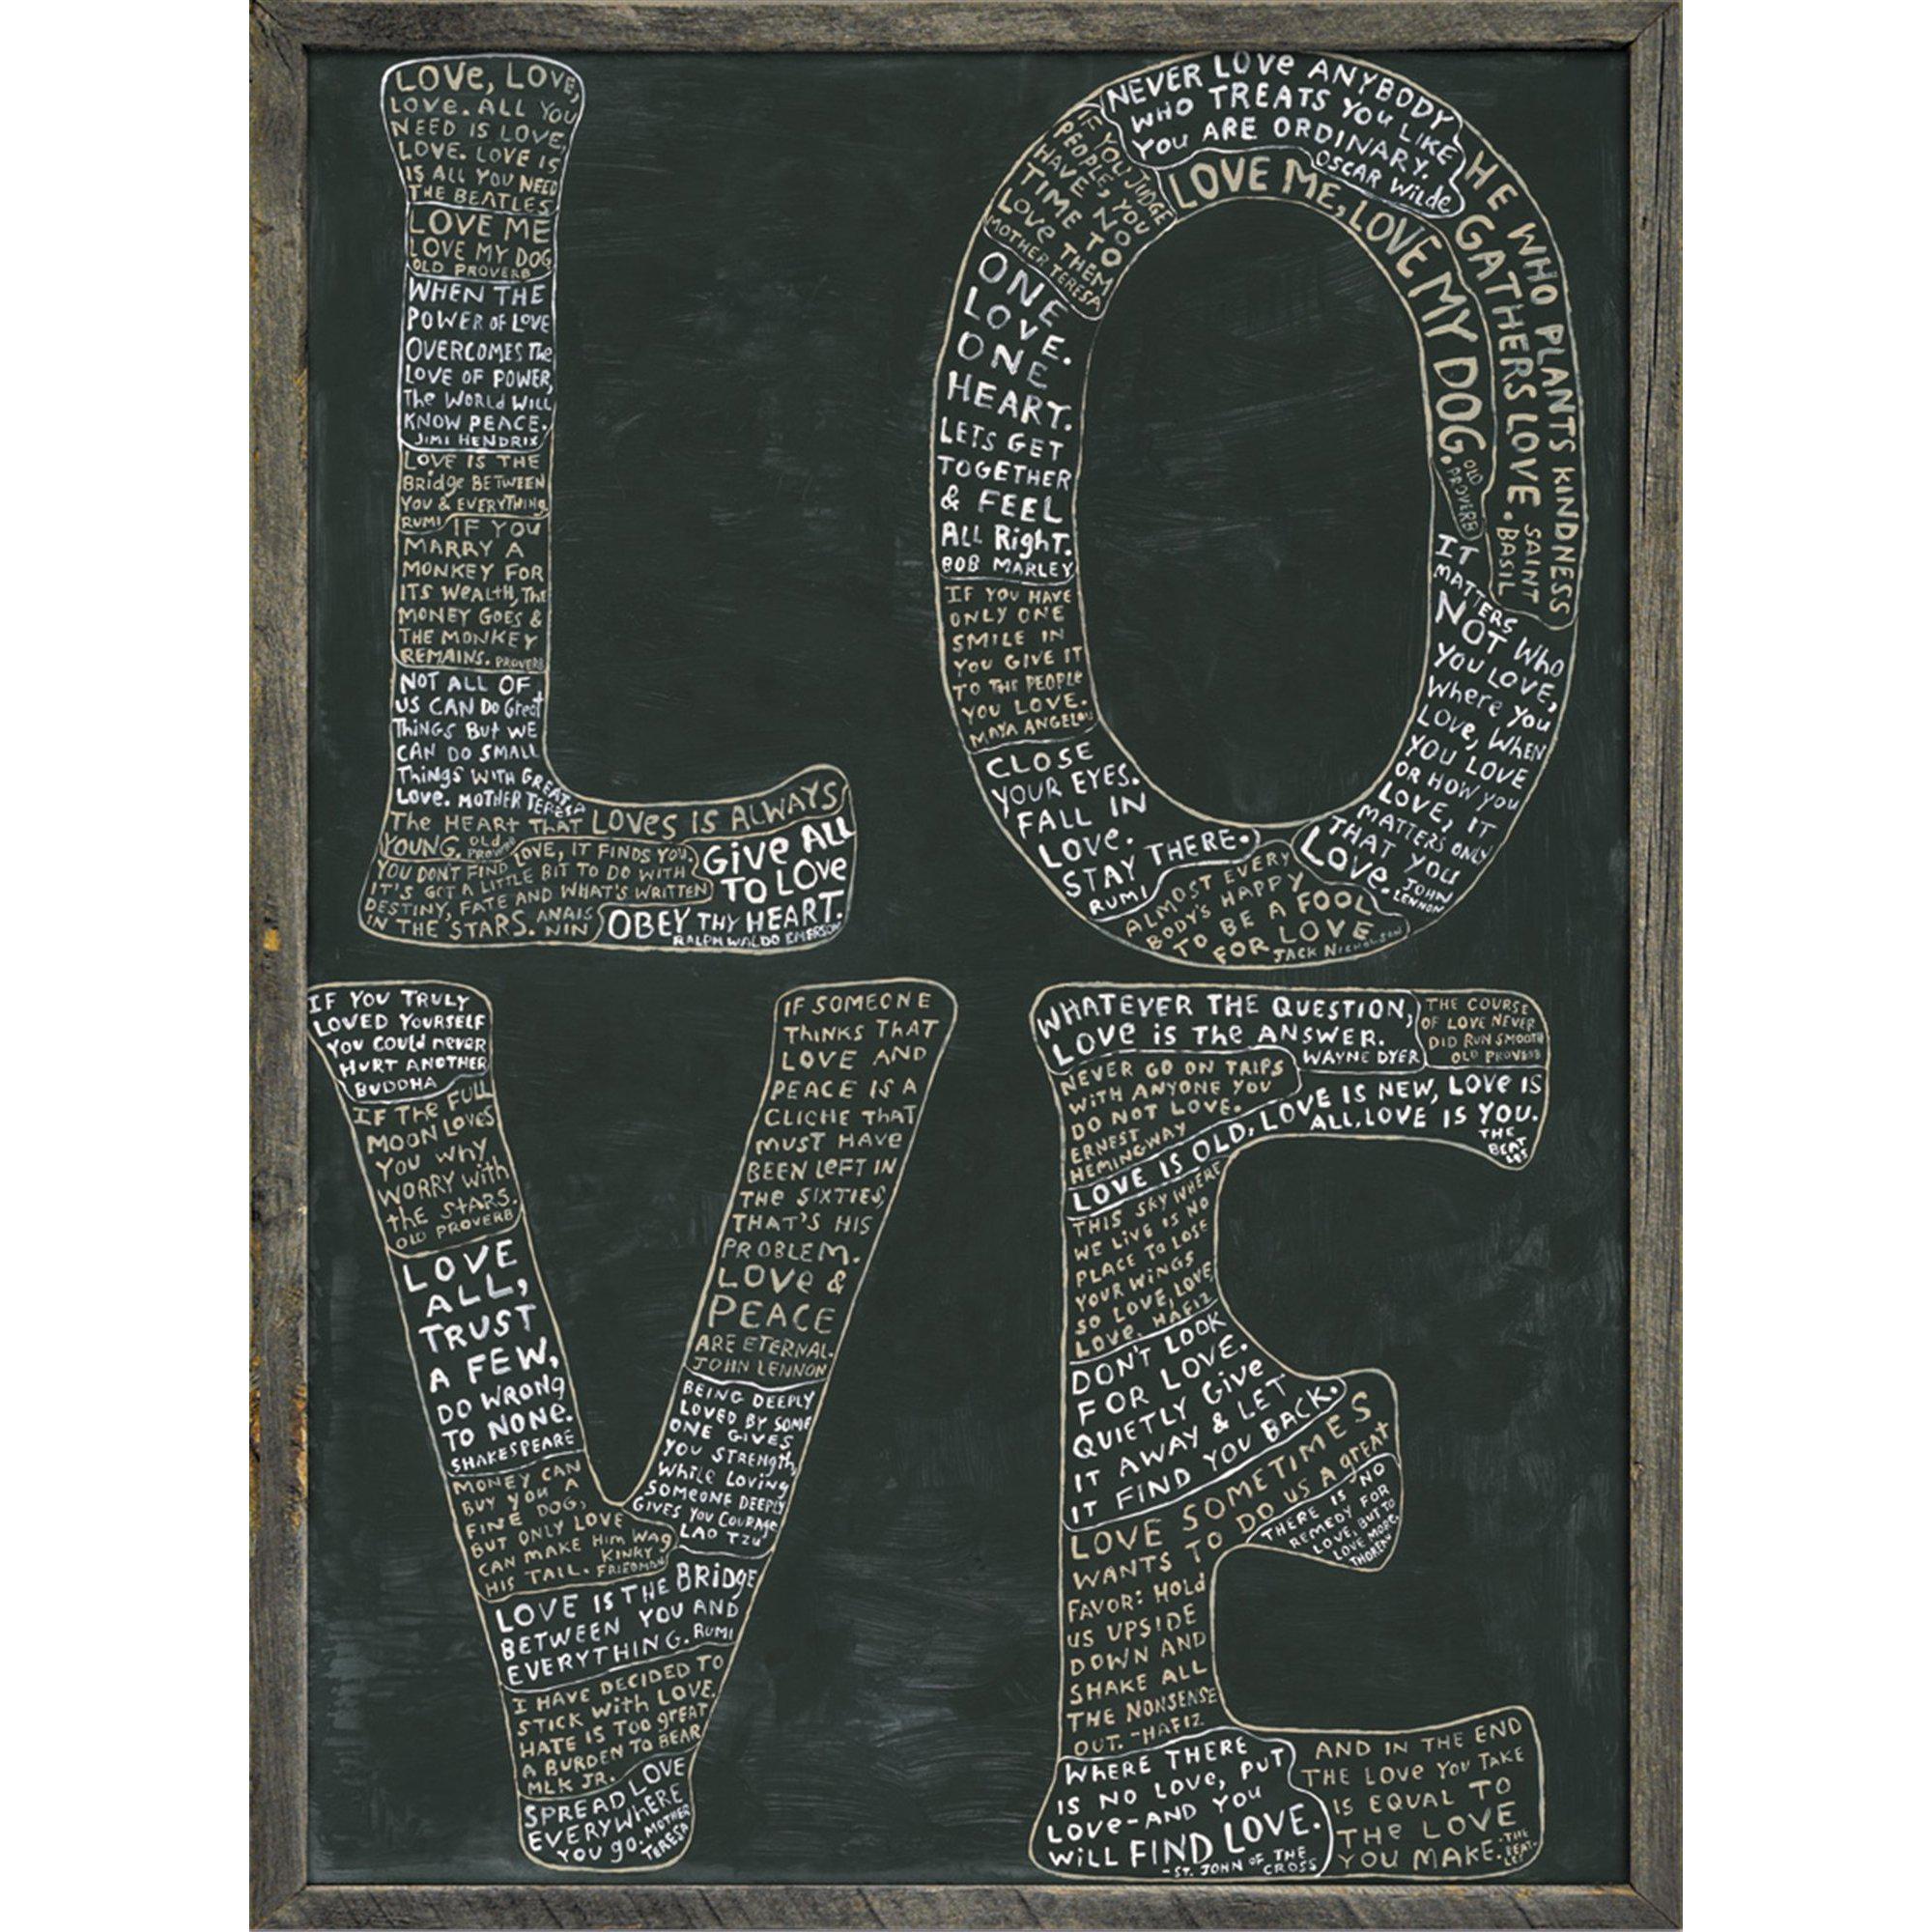 LOVE, LOVE,
LOVE. ALL YOU
NEED IS LOVE,
LOVE. LOVE IS
IS ALL YOU NEED
THE BEATLES
LOVE ME
LOVE MY DOG
OLD PROVERB
WHEN THE
POWER OF LOVE
OVERCOMES THE
LOVE OF POWER,
THE WORLD WILL
KNOW PEACE.
JIMI HENDRIX
LOVE IS THE
BRIDGE BETWEEN
YOU & EVERYTHING
RUMI
IF YOU
MARRY A
MONKEY FOR
ITS WEALTH, THE
MONEY GOES &
THE MONKEY
REMAINS. PROVERB
NOT ALL OF
US CAN DO GREAT
THINGS BUT WE
CAN DO SMALL
THINGS WITH GREAT
LOVE. MOTHER TERESA
THE HEART THAT LOVES IS ALWAYS
YOUNG. OLD PROVERB
YOU DON'T FIND LOVE, IT FINDS YOU.
IT'S GOT A LITTLE BIT TO DO WITH
DESTINY, FATE AND WHAT'S WRITTEN
IN THE STARS. ANAIS NIN
GIVE ALL
TO LOVE
OBEY THY HEART.
RALPH WALDO EMERSON
NEVER LOVE ANYBODY
WHO TREATS YOU LIKE
YOU ARE ORDINARY.
OSCAR WILDE
IF YOU JUDGE
PEOPLE, YOU
HAVE NO
TIME TO
LOVE THEM
MOTHER TERESA
LOVE ME, LOVE MY DOG.
OLD PROVERB
HE WHO PLANTS KINDNESS
GATHERS LOVE. SAINT
BASIL
ONE
LOVE.
ONE
HEART.
LETS GET
TOGETHER
& FEEL
ALL RIGHT.
BOB MARLEY
IF YOU HAVE
ONLY ONE
SMILE IN
YOU GIVE IT
TO THE PEOPLE
YOU LOVE.
MAYA ANGELOU
CLOSE
YOUR EYES.
FALL IN
LOVE.
STAY THERE.
RUMI
ALMOST EVERY
BODY'S HAPPY
TO BE A FOOL
FOR LOVE
JACK NICHOLSON
IT
MATTERS
NOT WHO
YOU LOVE,
WHERE YOU
LOVE, WHEN
YOU LOVE
OR HOW YOU
LOVE, IT
MATTERS ONLY
THAT YOU
LOVE. JOHN
LENNON
IF YOU TRULY
LOVED YOURSELF
YOU COULD NEVER
HURT ANOTHER
BUDDHA
IF THE FULL
MOON LOVES
YOU WHY
WORRY WITH
THE STARS.
OLD PROVERB
LOVE
ALL,
TRUST
A FEW,
DO WRONG
TO NONE.
SHAKESPEARE
MONEY CAN
BUY YOU A
FINE DOG,
BUT ONLY LOVE
CAN MAKE HIM WAG
HIS TAIL. KINKY
FRIEDMAN
LOVE IS THE BRIDGE
BETWEEN YOU AND
EVERYTHING. RUMI
I HAVE DECIDED TO
STICK WITH LOVE.
HATE IS TOO GREAT
A BURDEN TO BEAR
MLK JR.
SPREAD LOVE
EVERYWHERE
YOU GO. MOTHER
TERESA
IF SOMEONE
THINKS THAT
LOVE AND
PEACE IS A
CLICHE THAT
MUST HAVE
BEEN LEFT IN
THE SIXTIES,
THAT'S HIS
PROBLEM.
LOVE &
PEACE
ARE ETERNAL.
JOHN LENNON
BEING DEEPLY
LOVED BY SOME
ONE GIVES
YOU STRENGTH,
WHILE LOVING
SOMEONE DEEPLY
GIVES YOU COURAGE
LAO TZU
WHATEVER THE QUESTION,
LOVE IS THE ANSWER.
WAYNE DYER
THE COURSE
OF LOVE NEVER
DID RUN SMOOTH
OLD PROVERB
NEVER GO ON TRIPS
WITH ANYONE YOU
DO NOT LOVE.
ERNEST
HEMINGWAY
LOVE IS OLD, LOVE IS NEW, LOVE IS
ALL, LOVE IS YOU.
THE
BEAT
LES
THIS SKY WHERE
WE LIVE IS NO
PLACE TO LOSE
YOUR WINGS
SO LOVE, LOVE,
LOVE. HAFIZ
DON'T LOOK
FOR LOVE.
QUIETLY GIVE
IT AWAY & LET
IT FIND YOU BACK.
LOVE SOMETIMES
WANTS TO DO US A GREAT
FAVOR: HOLD
US UPSIDE
DOWN AND
SHAKE ALL
THE NONSENSE
OUT. -HAFIZ
THERE IS NO
REMEDY FOR
LOVE, BUT TO
LOVE MORE.
THOREAU
WHERE THERE
IS NO LOVE, PUT
LOVE-AND YOU
WILL FIND LOVE.
-ST. JOHN OF THE
CROSS
AND IN THE END
THE LOVE YOU TAKE
IS EQUAL TO
THE LOVE
YOU MAKE. THE
BEAT-
LES